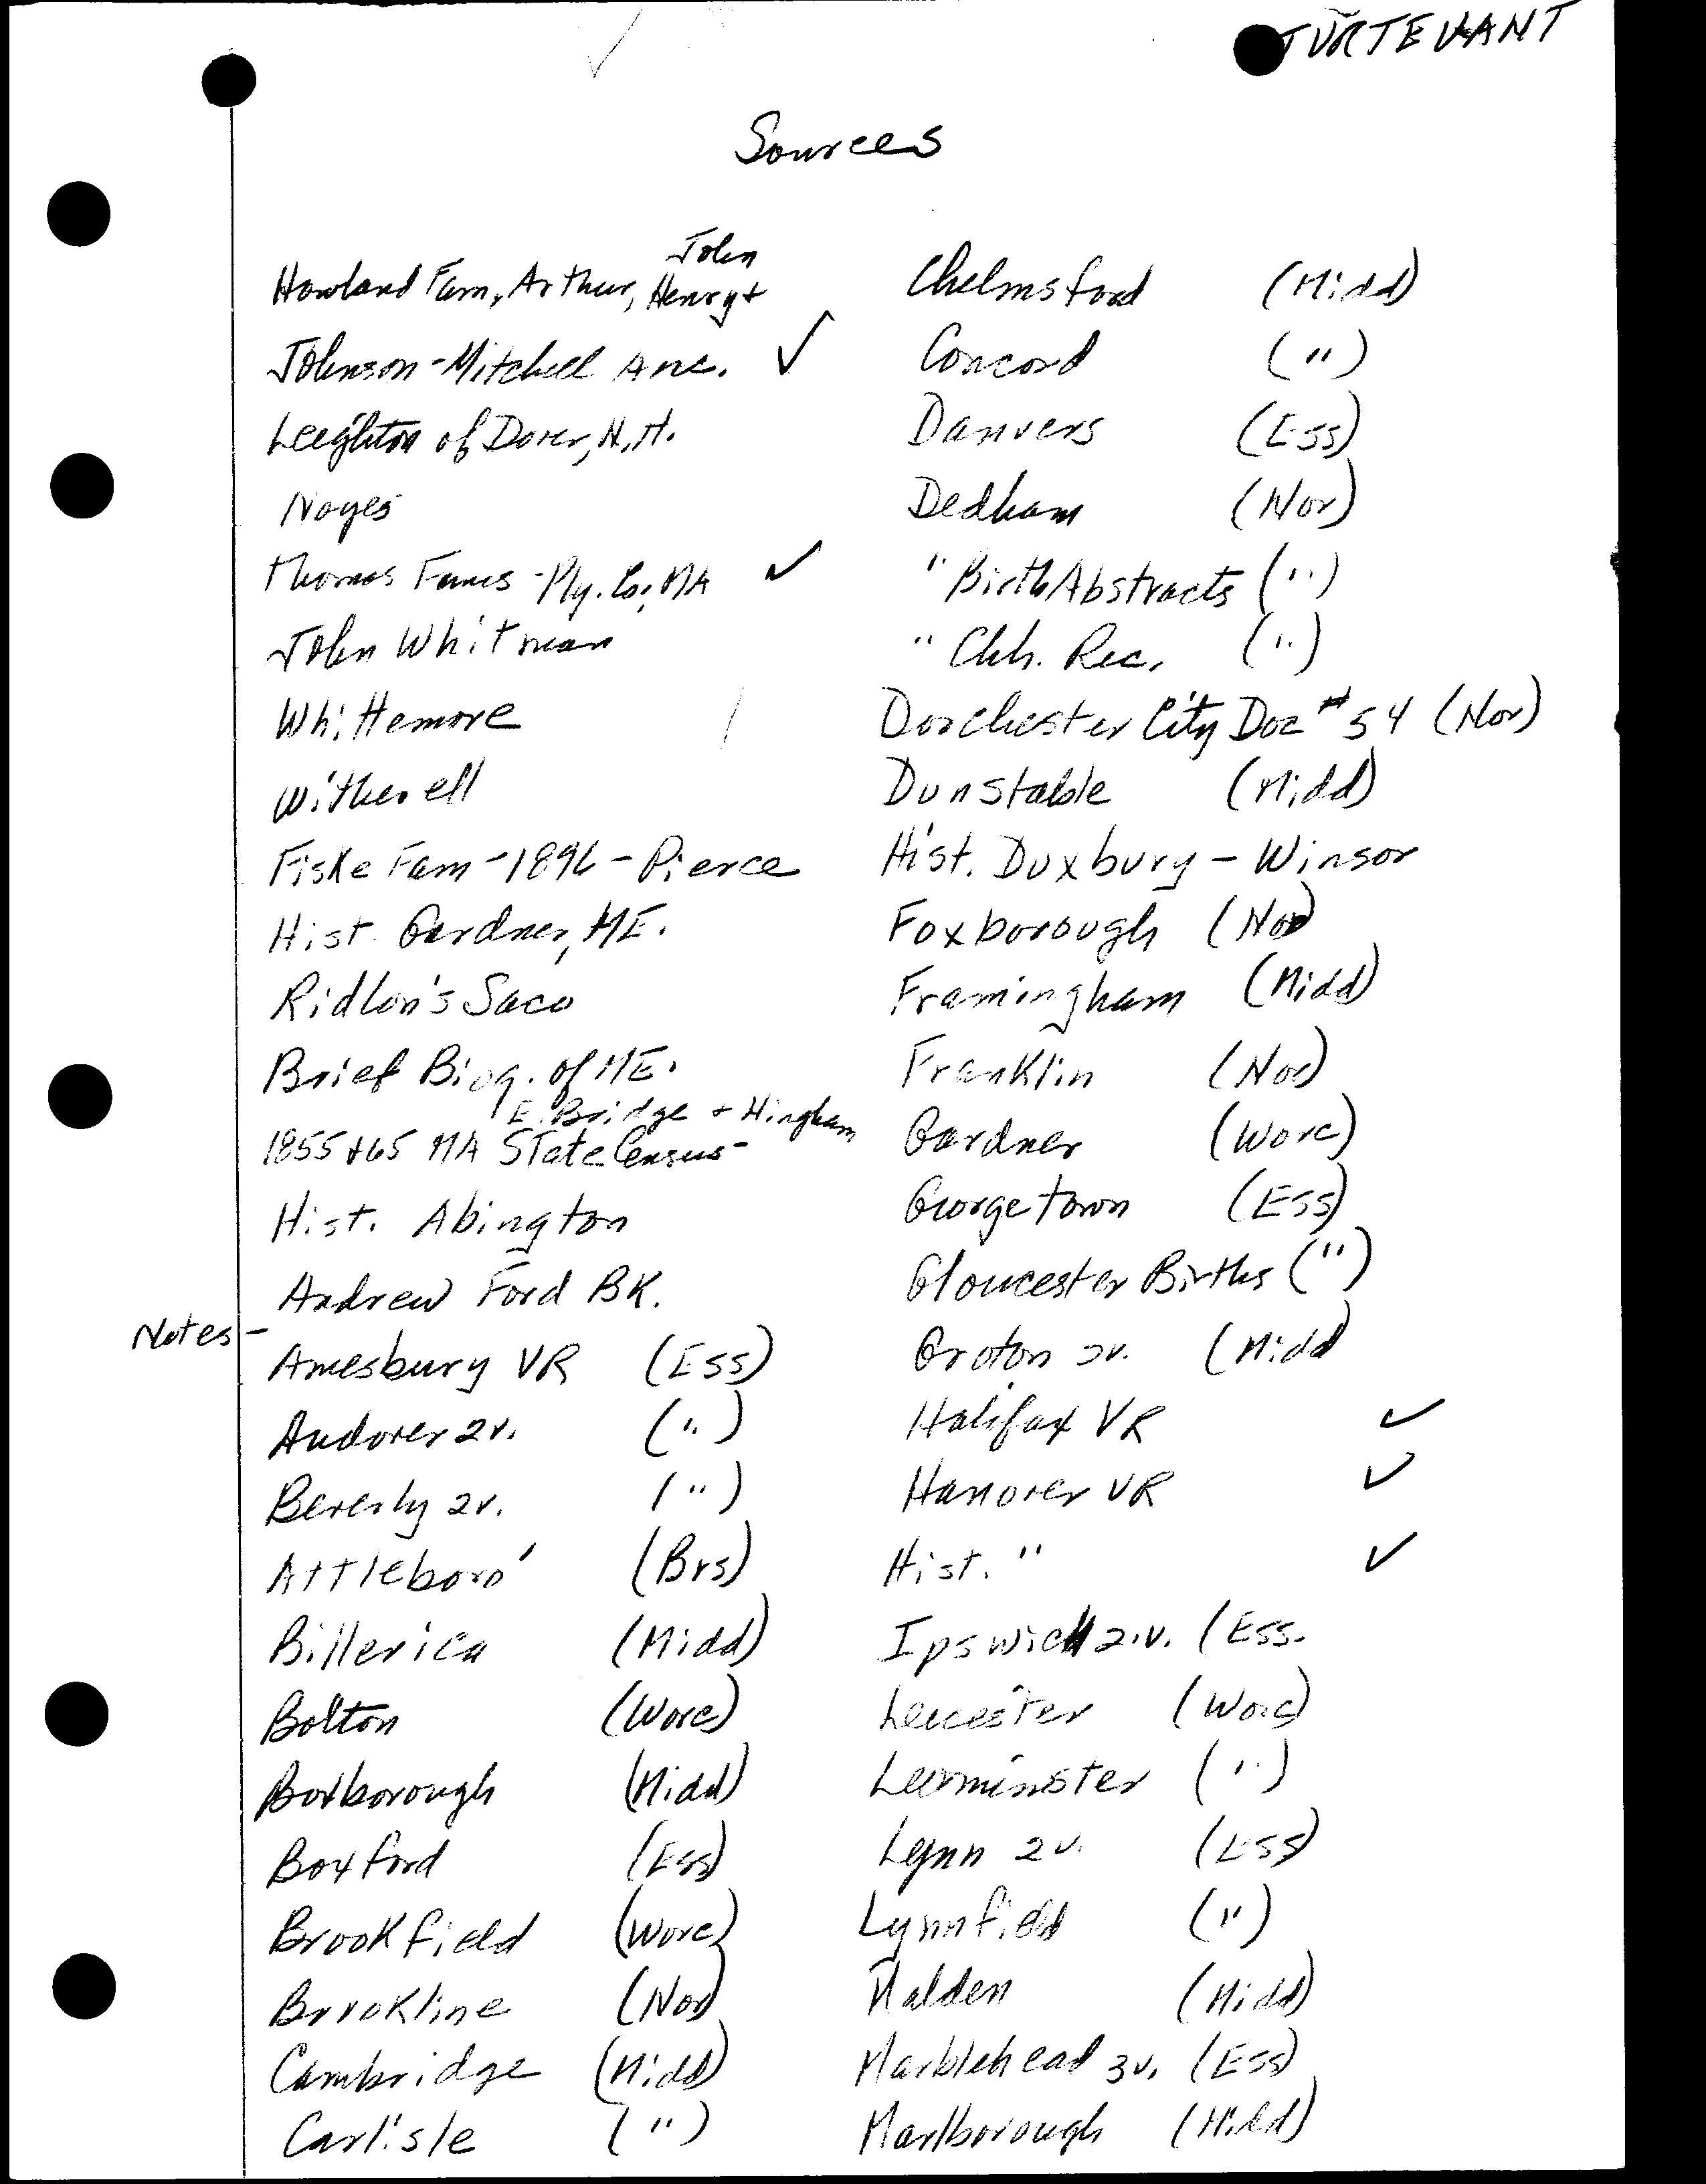 STURTEVANT
Sources
John
Howland Fam, Arthur, Henry +
Johnson-Mitchell Anc. ✓
Leighton of Dover, N.H.
Noyes
Thomas Fams - Ply. Co., MA ✓
John Whitman
Whittemore
Witherell
Fiske Fam - 1896 - Pierce
Hist. Gardner, ME.
Ridlon's Saco
Brief Biog. of ME.
E. Bridge + Hingham
1855 + 65 MA State Census -
Hist. Abington
Andrew Ford BK.
Notes -
Amesbury VR (Ess)
Andover 2v. (")
Beverly 2v. (")
Attleboro' (Brs)
Billerica (Midd)
Bolton (Worc)
Boxborough (Midd)
Boxford (Ess)
Brookfield (Worc)
Brookline (Nor)
Cambridge (Midd)
Carlisle (")
Chelmsford (Midd)
Concord (")
Danvers (Ess)
Dedham (Nor)
" Birth Abstracts (")
" Chh. Rec. (")
Dorchester City Doc # 54 (Nor)
Dunstable (Midd)
Hist. Duxbury - Winsor
Foxborough (Nor)
Framingham (Midd)
Franklin (Nor)
Gardner (Worc)
Georgetown (Ess)
Gloucester Births (")
Groton 2v. (Midd
Halifax VR ✓
Hanover VR ✓
Hist. " ✓
Ipswich 2.v. (Ess.
Leicester (Worc)
Leominster (")
Lynn 2v. (Ess)
Lynnfield (")
Malden (Midd)
Marblehead 3v. (Ess)
Marlborough (Midd)